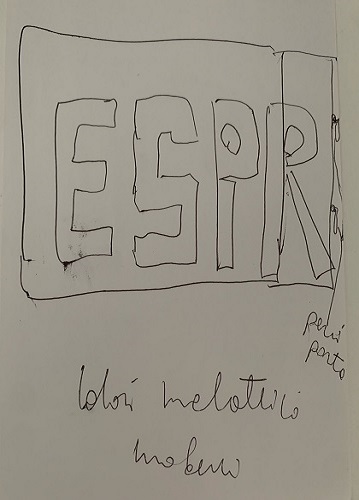 ESPR
porta
colori metallici
moderni